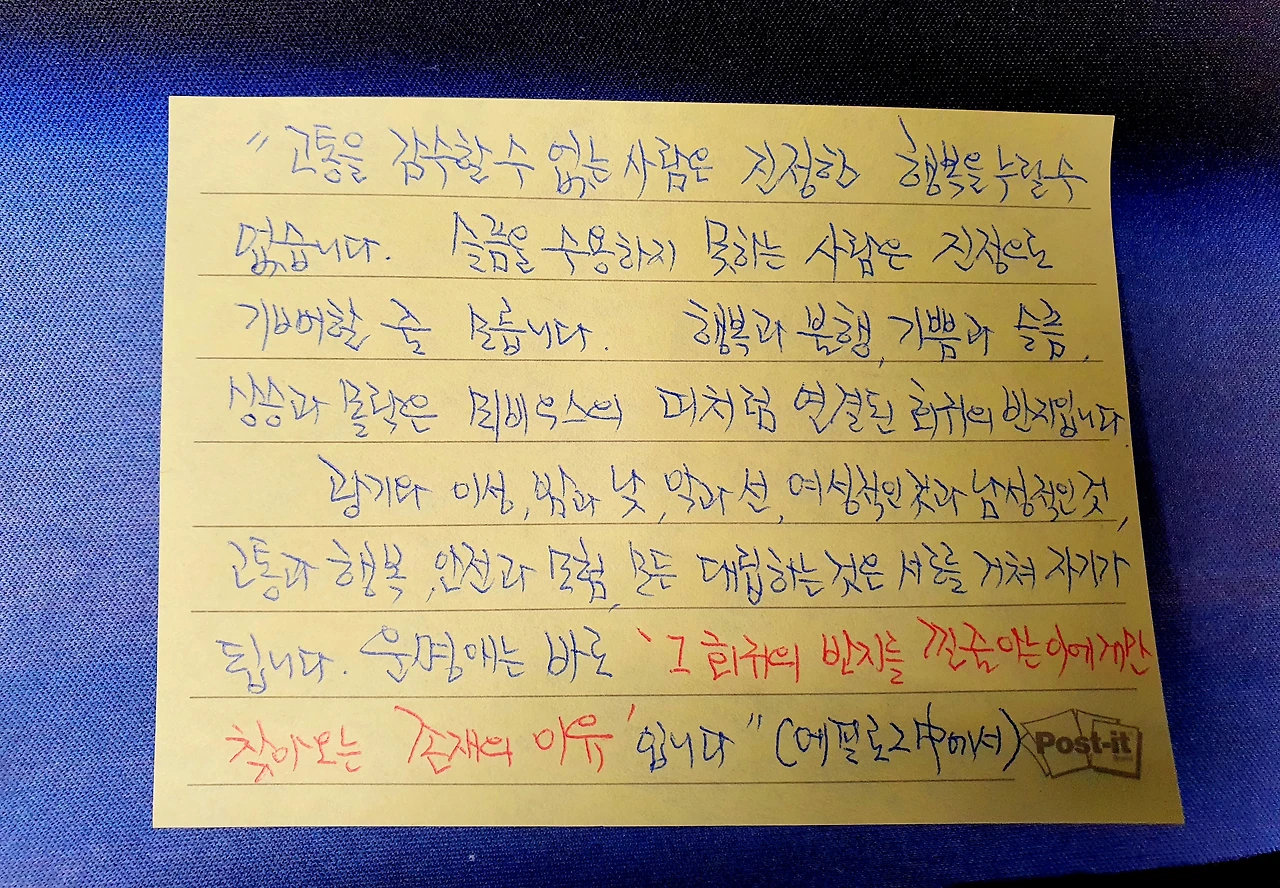 "고통을 감수할 수 없는 사람은 진정한 행복을 누릴 수
없습니다. 슬픔을 수용하지 못하는 사람은 진정으로
기뻐할 줄 모릅니다. 행복과 불행, 기쁨과 슬픔,
상승과 몰락은 뫼비우스의 띠처럼 연결된 회귀의 반지입니다.
광기와 이성, 밤과 낮, 악과 선, 여성적인 것과 남성적인 것,
고통과 행복, 안전과 모험, 모든 대립하는 것은 서로를 거쳐 자기가
됩니다. 운명애는 바로 '그 회귀의 반지를 낄 줄 아는 이에게만
찾아오는 존재의 이유'입니다" (에필로그中에서)
Post-it